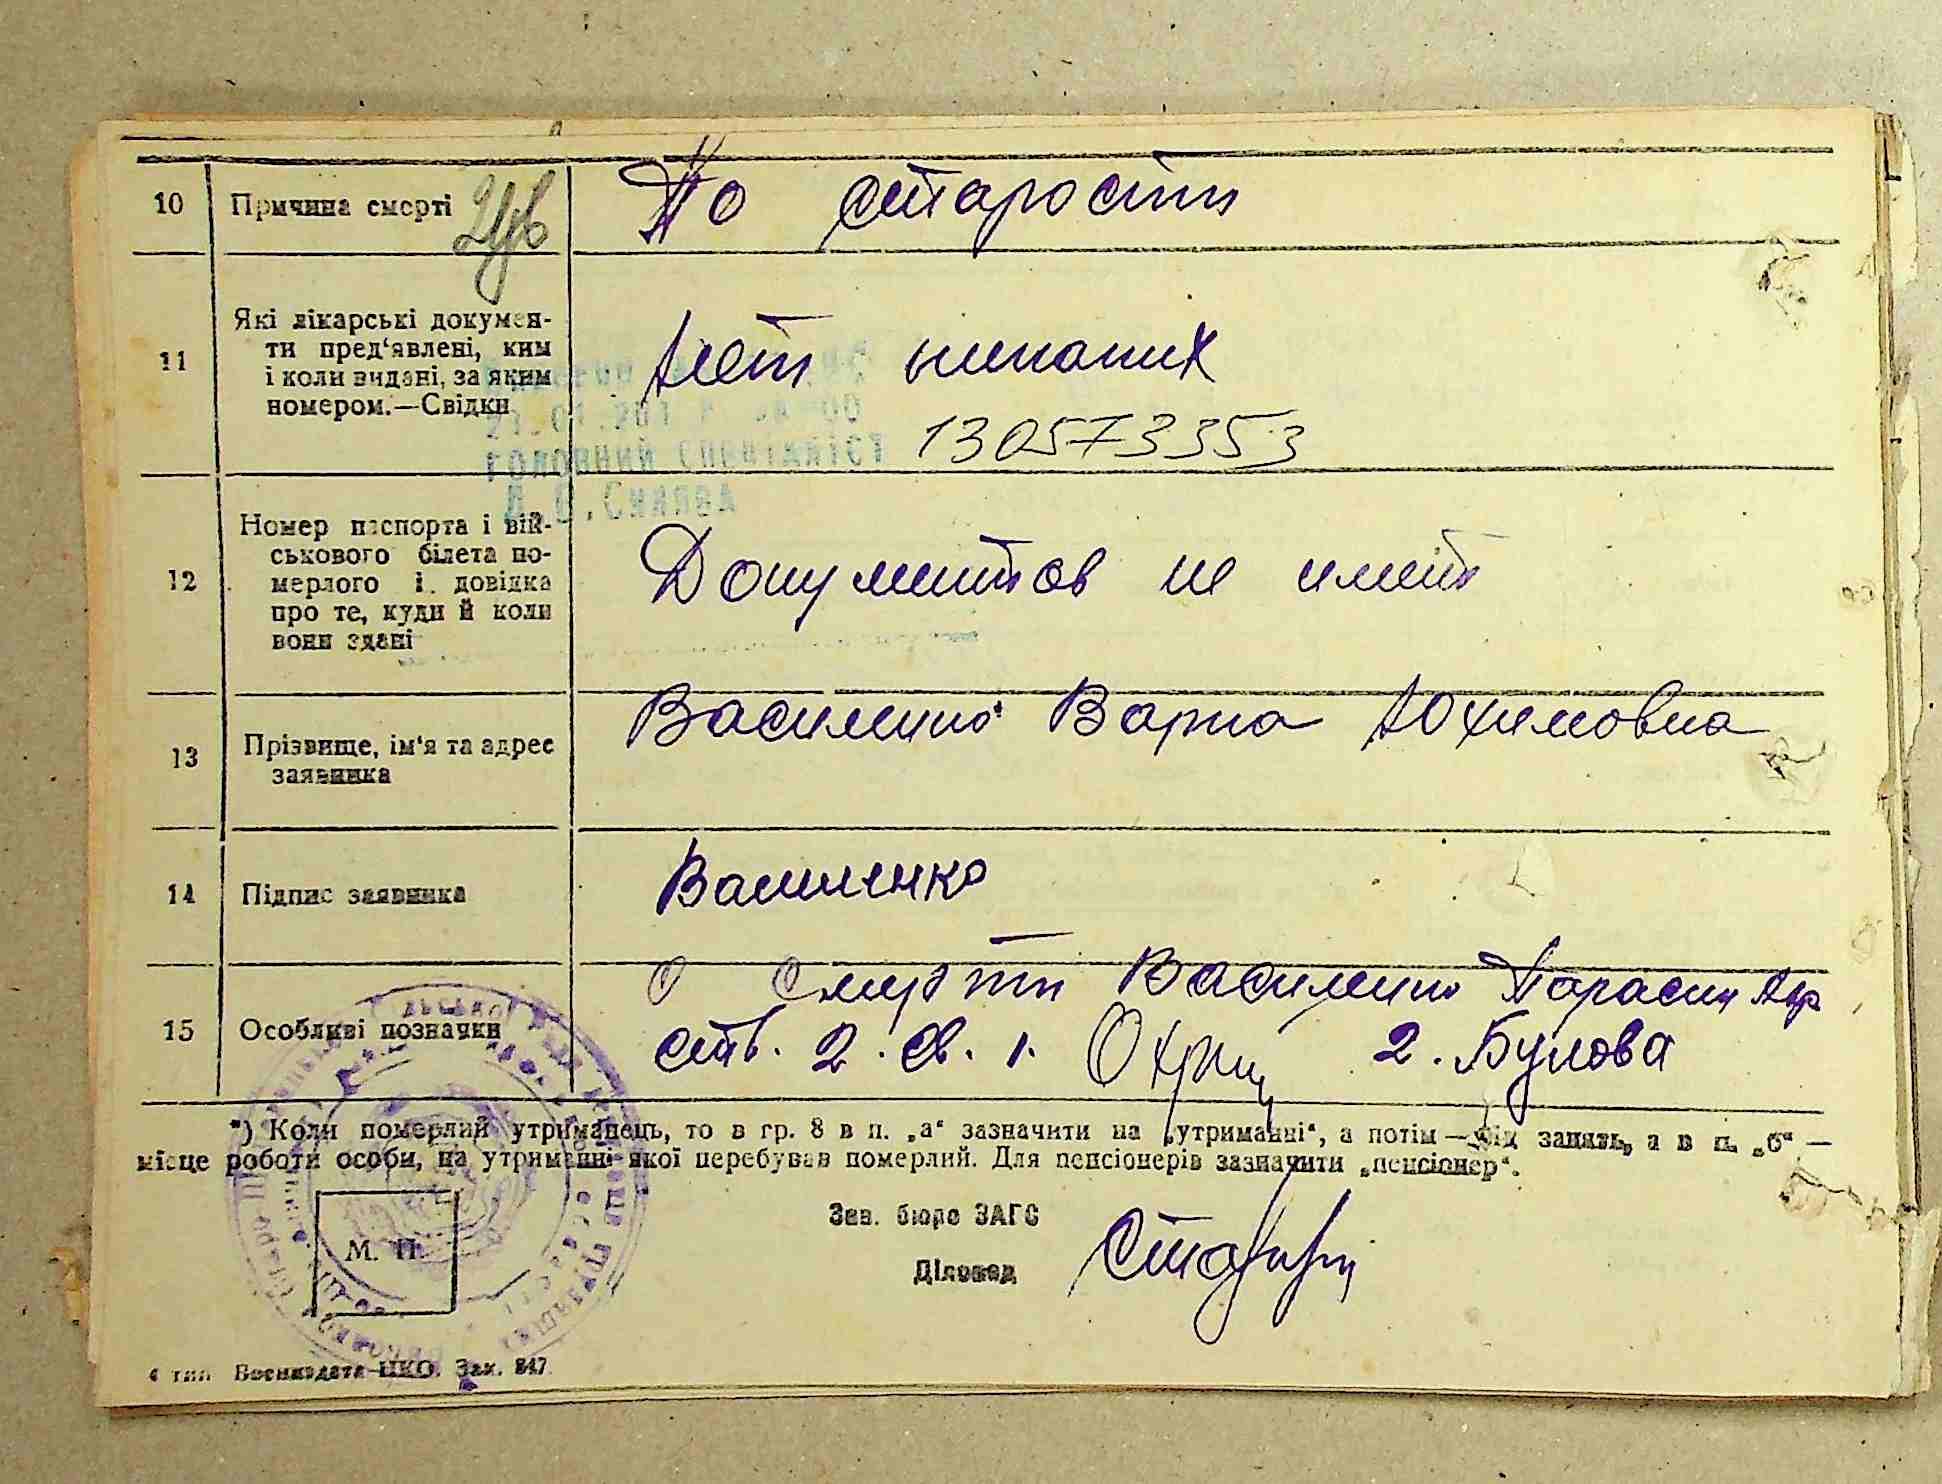 10 Причина смерті По старости
11 Які лікарські докумен-
ти пред‘явлені, ким
і коли видані, за яким
номером.—Свідки
Нет никаких
130573353
ГОЛОВНИЙ СПЕЦІАЛІСТ
12 Номер паспорта і вій-
ськового білета по-
мерлого і довідка
про те, куди й коли
вони здані
Документов не имеит
13 Прізвище, ім‘я та адрес
заявника
Василенко Варка Юхимовна
14 Підпис заявника Василенко
15 Особливі позначки
О смерти Василенко Параски
2. Булова
*) Коли померлий утриманець, то в гр. 8 в п. „а“ зазначити на „утриманні“, а потім — рід занять, а в п. „б“ —
місце роботи особи, на утриманні якої перебував померлий. Для пенсіонерів зазначити „пенсіонер“.
Зав. бюро ЗАГС
М. П.
Діловод
4 тип Воениздата НКО. Зак. 847